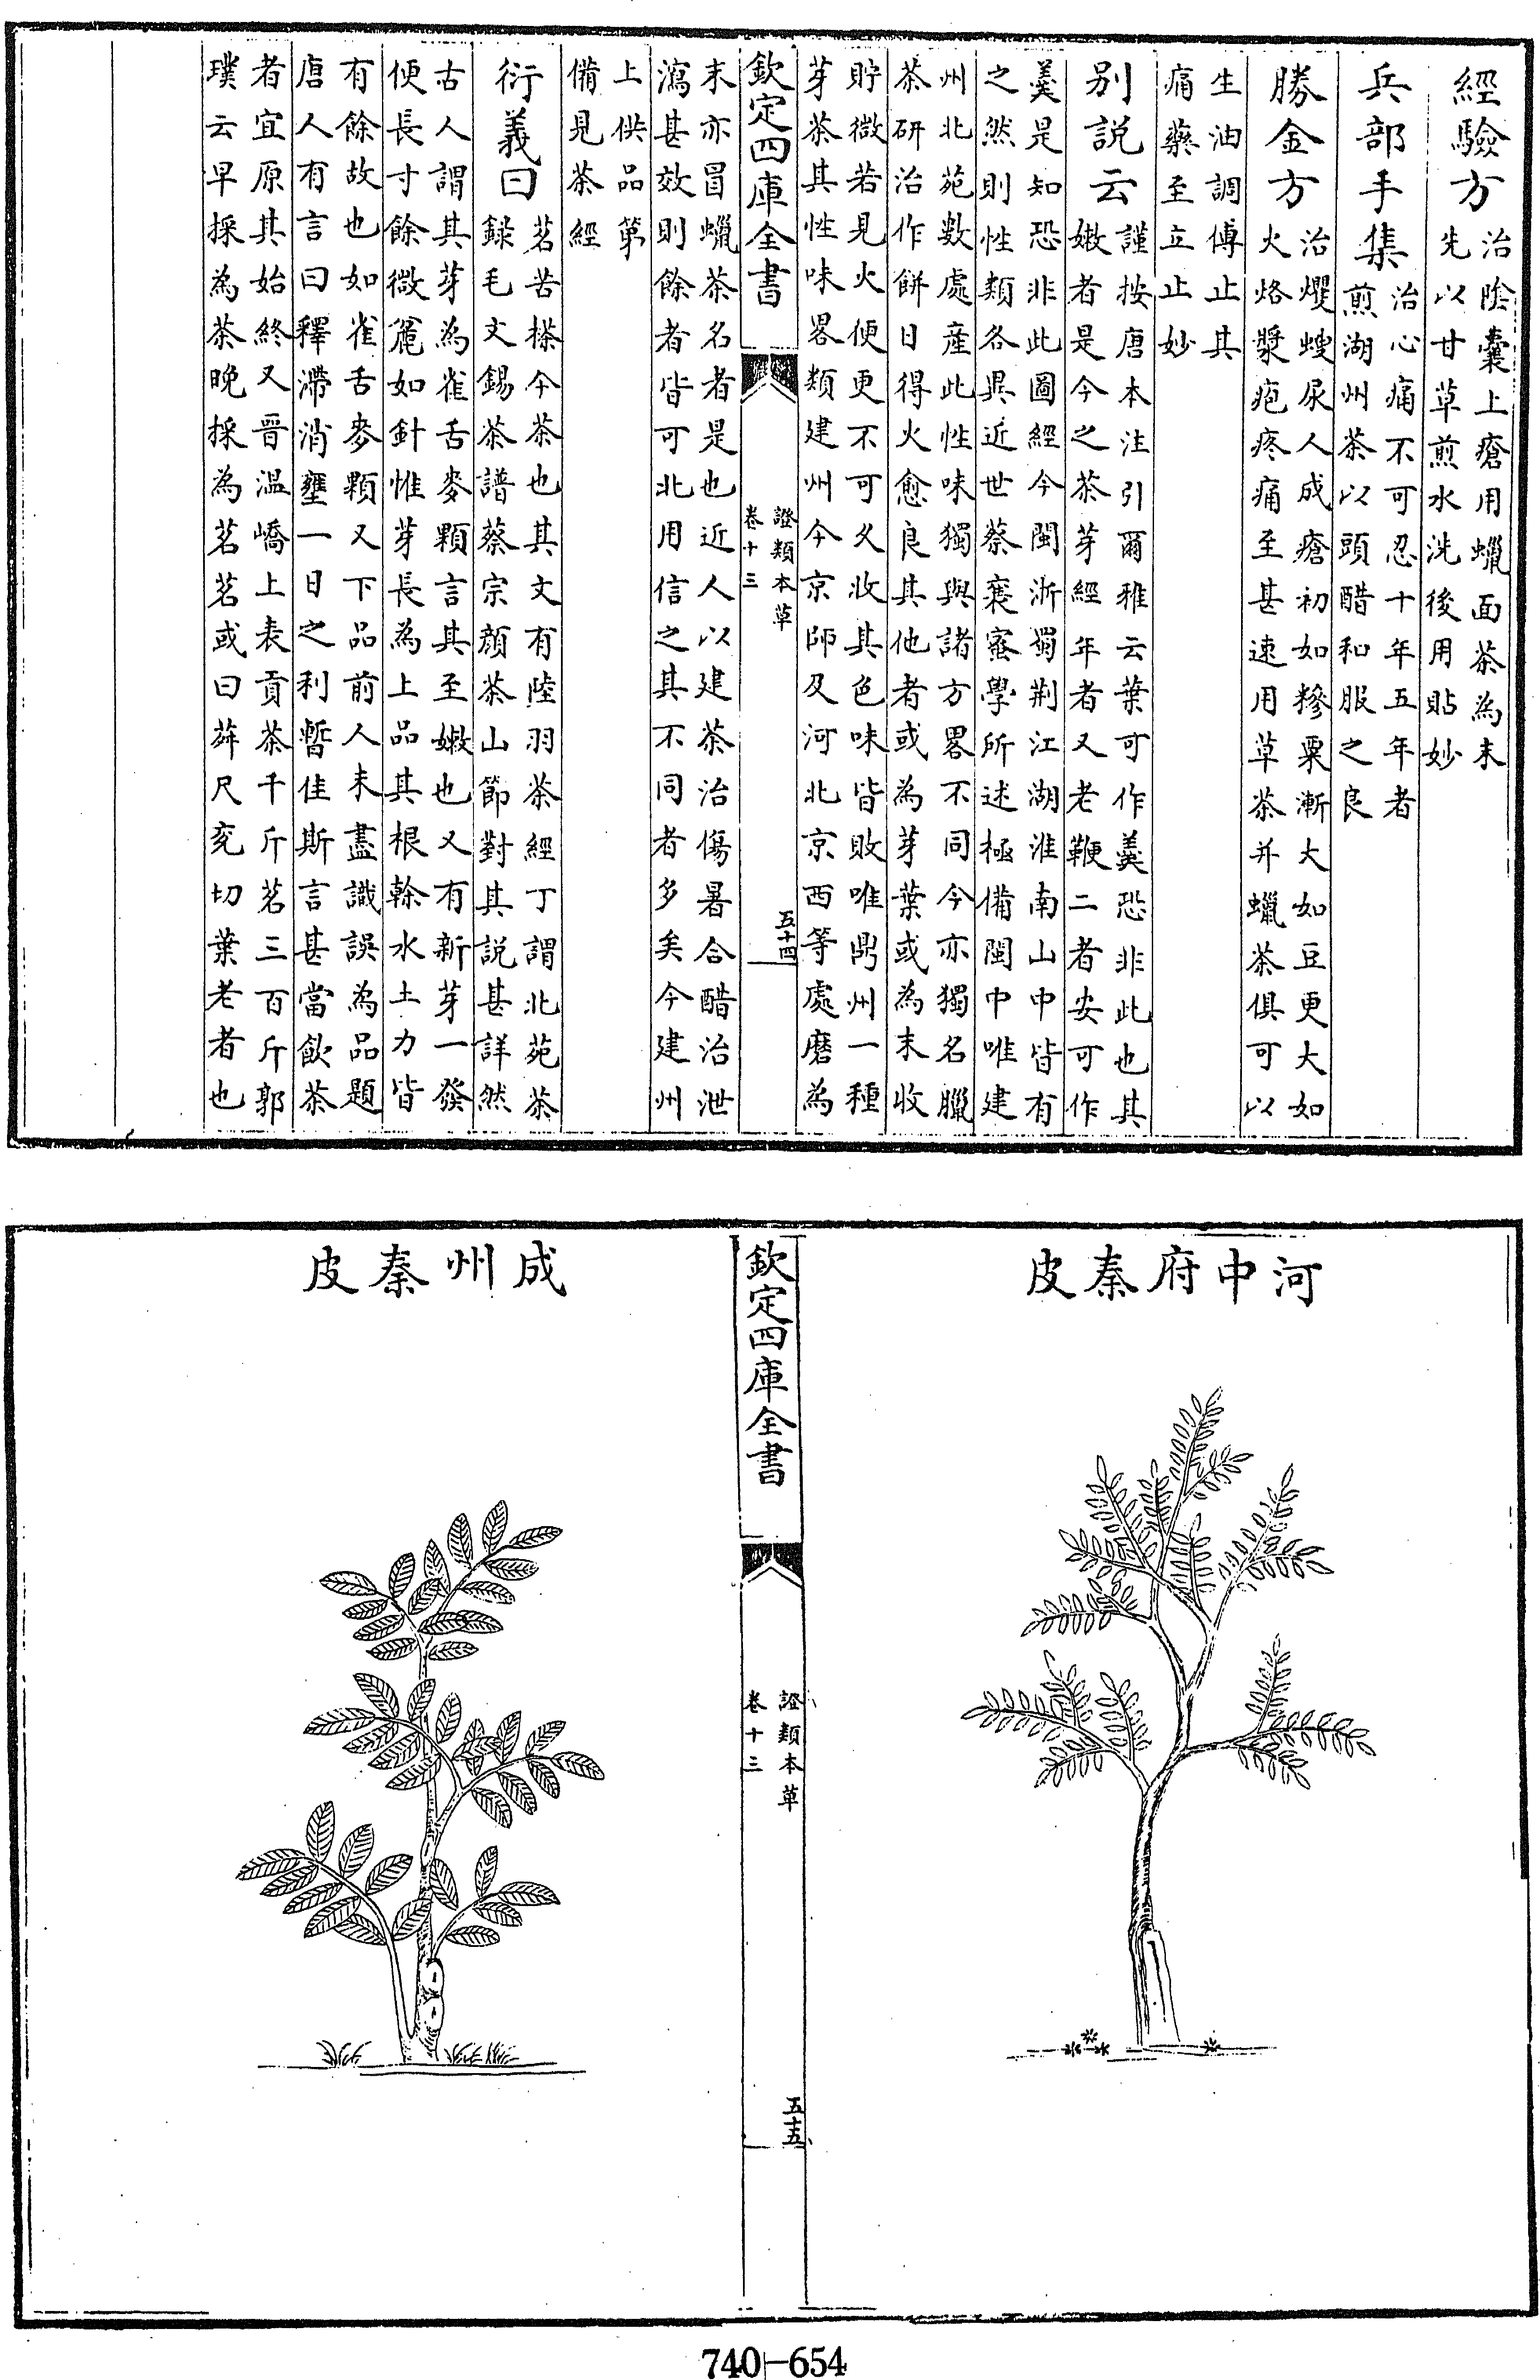 經驗方治陰囊上瘡用蠟面茶為末
先以甘草煎水洗後用貼妙
兵部手集治心痛不可忍十年五年者
煎湖州茶以頭醋和服之良
勝金方治㸌螋尿人成瘡初如糝粟漸大如豆更大如
火烙漿疱疼痛至甚速用草茶并蠟茶俱可以
生油調傅止其
痛藥至立止妙
別說云謹按唐本注引爾雅云葉可作羹恐非此也其
嫩者是今之茶芽經年者又老鞕二者安可作
羹是知恐非此圖經今閩浙蜀荆江湖淮南山中皆有
之然則性類各異近世蔡襄宻學所述極備閩中唯建
州北苑數處産此性味獨與諸方畧不同今亦獨名臘
茶研治作餅日得火愈良其他者或為芽葉或為末收
貯微若見火便更不可乆收其色味皆敗唯鼎州一種
芽茶其性味畧類建州今京師及河北京西等處磨為
欽定四庫全書
證類本草
卷十三
五十四
末亦冒蠟茶名者是也近人以建茶治傷暑合醋治泄
瀉甚效則餘者皆可北用信之其不同者多矣今建州
上供品第
備見茶經
衍義曰茗苦㯽今茶也其文有陸羽茶經丁謂北苑茶
錄毛文錫茶譜蔡宗顔茶山節對其說甚詳然
古人謂其芽為雀舌麥顆言其至嫩也又有新芽一發
便長寸餘微麄如針惟芽長為上品其根幹水土力皆
有餘故也如雀舌麥顆又下品前人未盡識誤為品題
唐人有言曰釋滯消壅一日之利暫佳斯言甚當飲茶
者宜原其始終又晉温嶠上表貢茶千斤茗三百斤郭
璞云早採為茶晚採為茗茗或曰荈尺兖切葉老者也
河中府秦皮
欽定四庫全書
證類本草
卷十三
五十五
成州秦皮
740-654